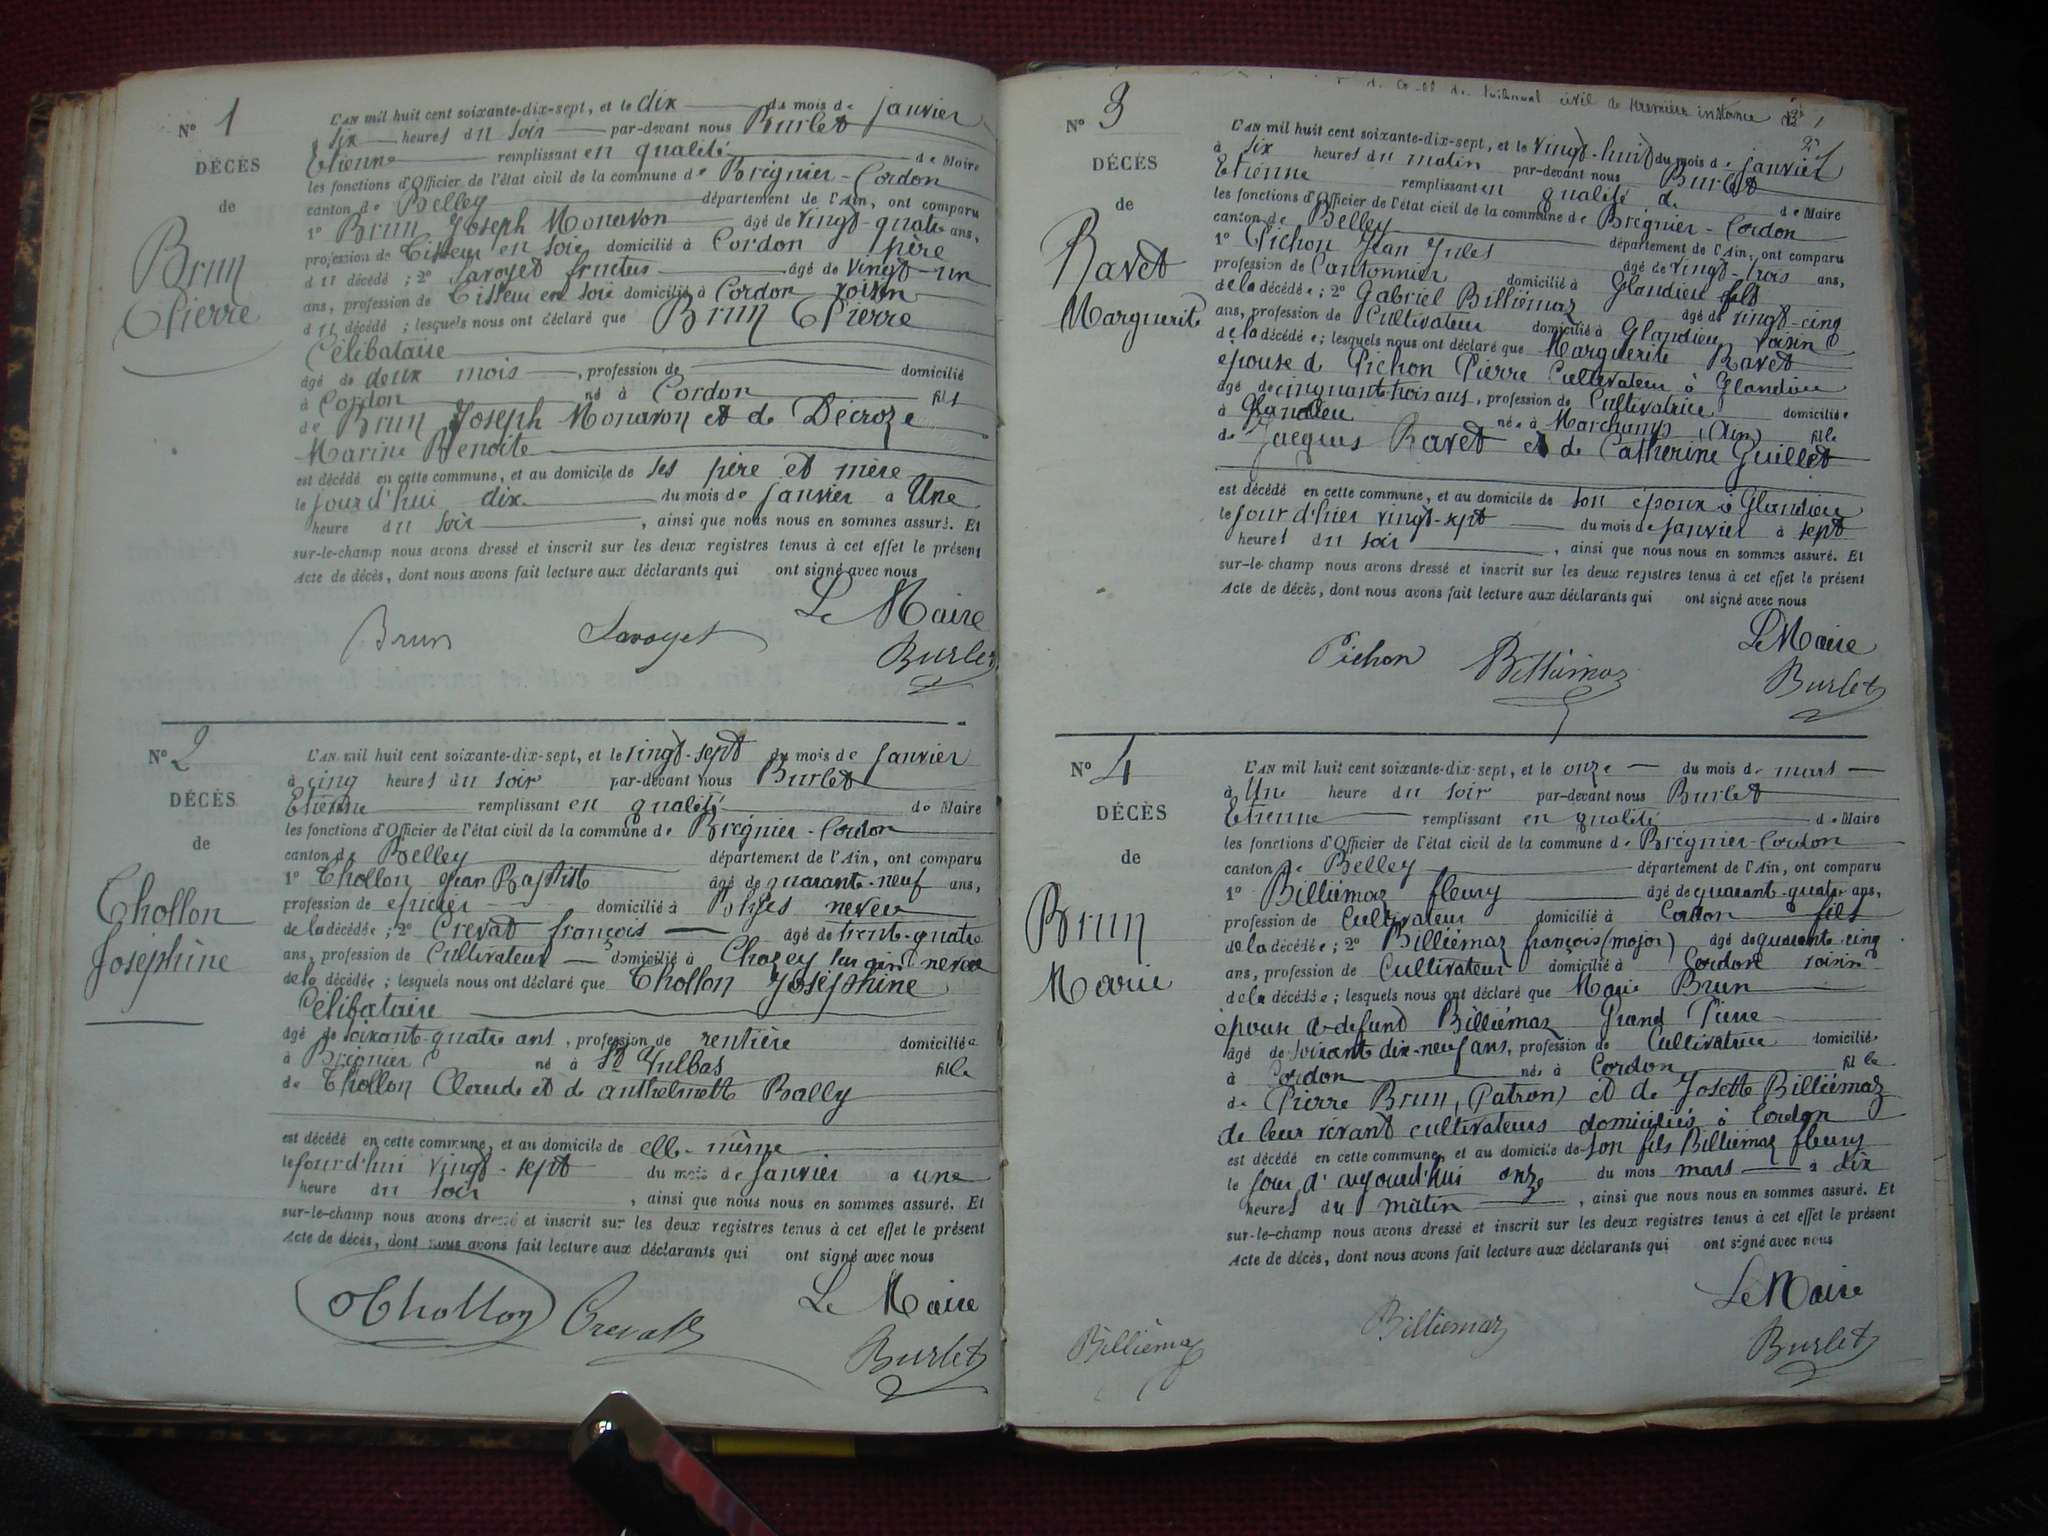 N° 1
DÉCÈS
de
Brun
Pierre
L'AN mil huit cent soixante-dix-sept, et le dix du mois de janvier
six heures du soir par-devant nous Burlet
Etienne remplissant en qualité de Maire
les fonctions d'Officier de l'état civil de la commune de Brégnier-Cordon
canton de Belley département de l'Ain, ont comparu
1° Brun Joseph Monavon âgé de vingt-quatre ans,
profession de Tisseur en soie domicilié à Cordon père
du décédé; 2° Savoyet fructus âgé de vingt-un
ans, profession de Tisseur en soie domicilié à Cordon voisin
du décédé; lesquels nous ont déclaré que Brun Pierre
Célibataire
âgé de deux mois, profession de domicilié
à Cordon né à Cordon fils
de Brun Joseph Monavon et de Décroze
Marine Benoite
est décédé en cette commune, et au domicile de ses père et mère
le jour d'hui dix du mois de janvier à Une
heure du soir, ainsi que nous nous en sommes assuré. Et
sur-le-champ nous avons dressé et inscrit sur les deux registres tenus à cet effet le présent
Acte de décès, dont nous avons fait lecture aux déclarants qui ont signé avec nous
Le Maire
Brun Savoyet Burlet
N° 2
DÉCÈS
de
Thollon
Joséphine
L'AN mil huit cent soixante-dix-sept, et le vingt-sept du mois de janvier
à cinq heures du soir par-devant nous Burlet
Etienne remplissant en qualité de Maire
les fonctions d'Officier de l'état civil de la commune de Brégnier-Cordon
canton de Belley département de l'Ain, ont comparu
1° Thollon Jean Baptiste âgé de quarante-neuf ans,
profession de épicier domicilié à neveu
de la décédée; 2° Crevat françois âgé de trente-quatre
ans, profession de Cultivateur domicilié à Chazey sur ain neveu
de la décédée; lesquels nous ont déclaré que Thollon Joséphine
Célibataire
âgé de soixante-quatre ans, profession de rentière domiciliée
à Brégnier né à St Vulbas fille
de Thollon Claude et de anthelmette Bally
est décédé en cette commune, et au domicile de elle-même
le jour d'hui vingt-sept du mois de janvier à une
heure du soir, ainsi que nous nous en sommes assuré. Et
sur-le-champ nous avons dressé et inscrit sur les deux registres tenus à cet effet le présent
Acte de décès, dont nous avons fait lecture aux déclarants qui ont signé avec nous
Le Maire
Thollon Crevat Burlet
tribunal civil de première instance
N° 3
DÉCÈS
de
Ravet
Marguerite
L'AN mil huit cent soixante-dix-sept, et le vingt-huit du mois de janvier
à six heures du matin par-devant nous Burlet
Etienne remplissant en qualité de de Maire
les fonctions d'Officier de l'état civil de la commune de Brégnier-Cordon
canton de Belley département de l'Ain, ont comparu
1° Pichon Jean Jules âgé de vingt-trois ans,
profession de Cantonnier domicilié à Glandieu fils
de la décédée; 2° Gabriel Billiémaz âgé de vingt-cinq
ans, profession de Cultivateur domicilié à Glandieu voisin
de la décédée; lesquels nous ont déclaré que Marguerite Ravet
épouse de Pichon Pierre Cultivateur à Glandieu
âgé de cinquante-trois ans, profession de Cultivatrice domiciliée
à Glandieu née à Marchamp (Ain) fille
de Jacques Ravet et de Catherine Guillet
est décédé en cette commune, et au domicile de son époux à Glandieu
le jour d'hier vingt-sept du mois de janvier à sept
heures du soir, ainsi que nous nous en sommes assuré. Et
sur-le-champ nous avons dressé et inscrit sur les deux registres tenus à cet effet le présent
Acte de décès, dont nous avons fait lecture aux déclarants qui ont signé avec nous
Le Maire
Pichon Billiémaz Burlet
N° 4
DÉCÈS
de
Brun
Marie
L'AN mil huit cent soixante-dix-sept, et le onze du mois de mars
à Une heure du soir par-devant nous Burlet
Etienne remplissant en qualité de Maire
les fonctions d'Officier de l'état civil de la commune de Brégnier-Cordon
canton de Belley département de l'Ain, ont comparu
1° Billiémaz fleury âgé de quarante-quatre ans,
profession de Cultivateur domicilié à Cordon fils
de la décédée; 2° Billiémaz françois (major) âgé de quarante cinq
ans, profession de Cultivateur domicilié à Cordon voisin
de la décédée; lesquels nous ont déclaré que Marie Brun
épouse de defunt Billiémaz Grand Pierre
âgé de soixante dix-neuf ans, profession de Cultivatrice domiciliée
à Cordon née à Cordon fille
de Pierre Brun (Patron) et de Josette Billiémaz
de leur vivant cultivateurs domiciliés à Cordon
est décédé en cette commune, et au domicile de son fils Billiémaz fleury
le jour d'aujourd'hui onze du mois mars à dix
heures du matin, ainsi que nous nous en sommes assuré. Et
sur-le-champ nous avons dressé et inscrit sur les deux registres tenus à cet effet le présent
Acte de décès, dont nous avons fait lecture aux déclarants qui ont signé avec nous
Le Maire
Billiémaz Billiemaz Burlet